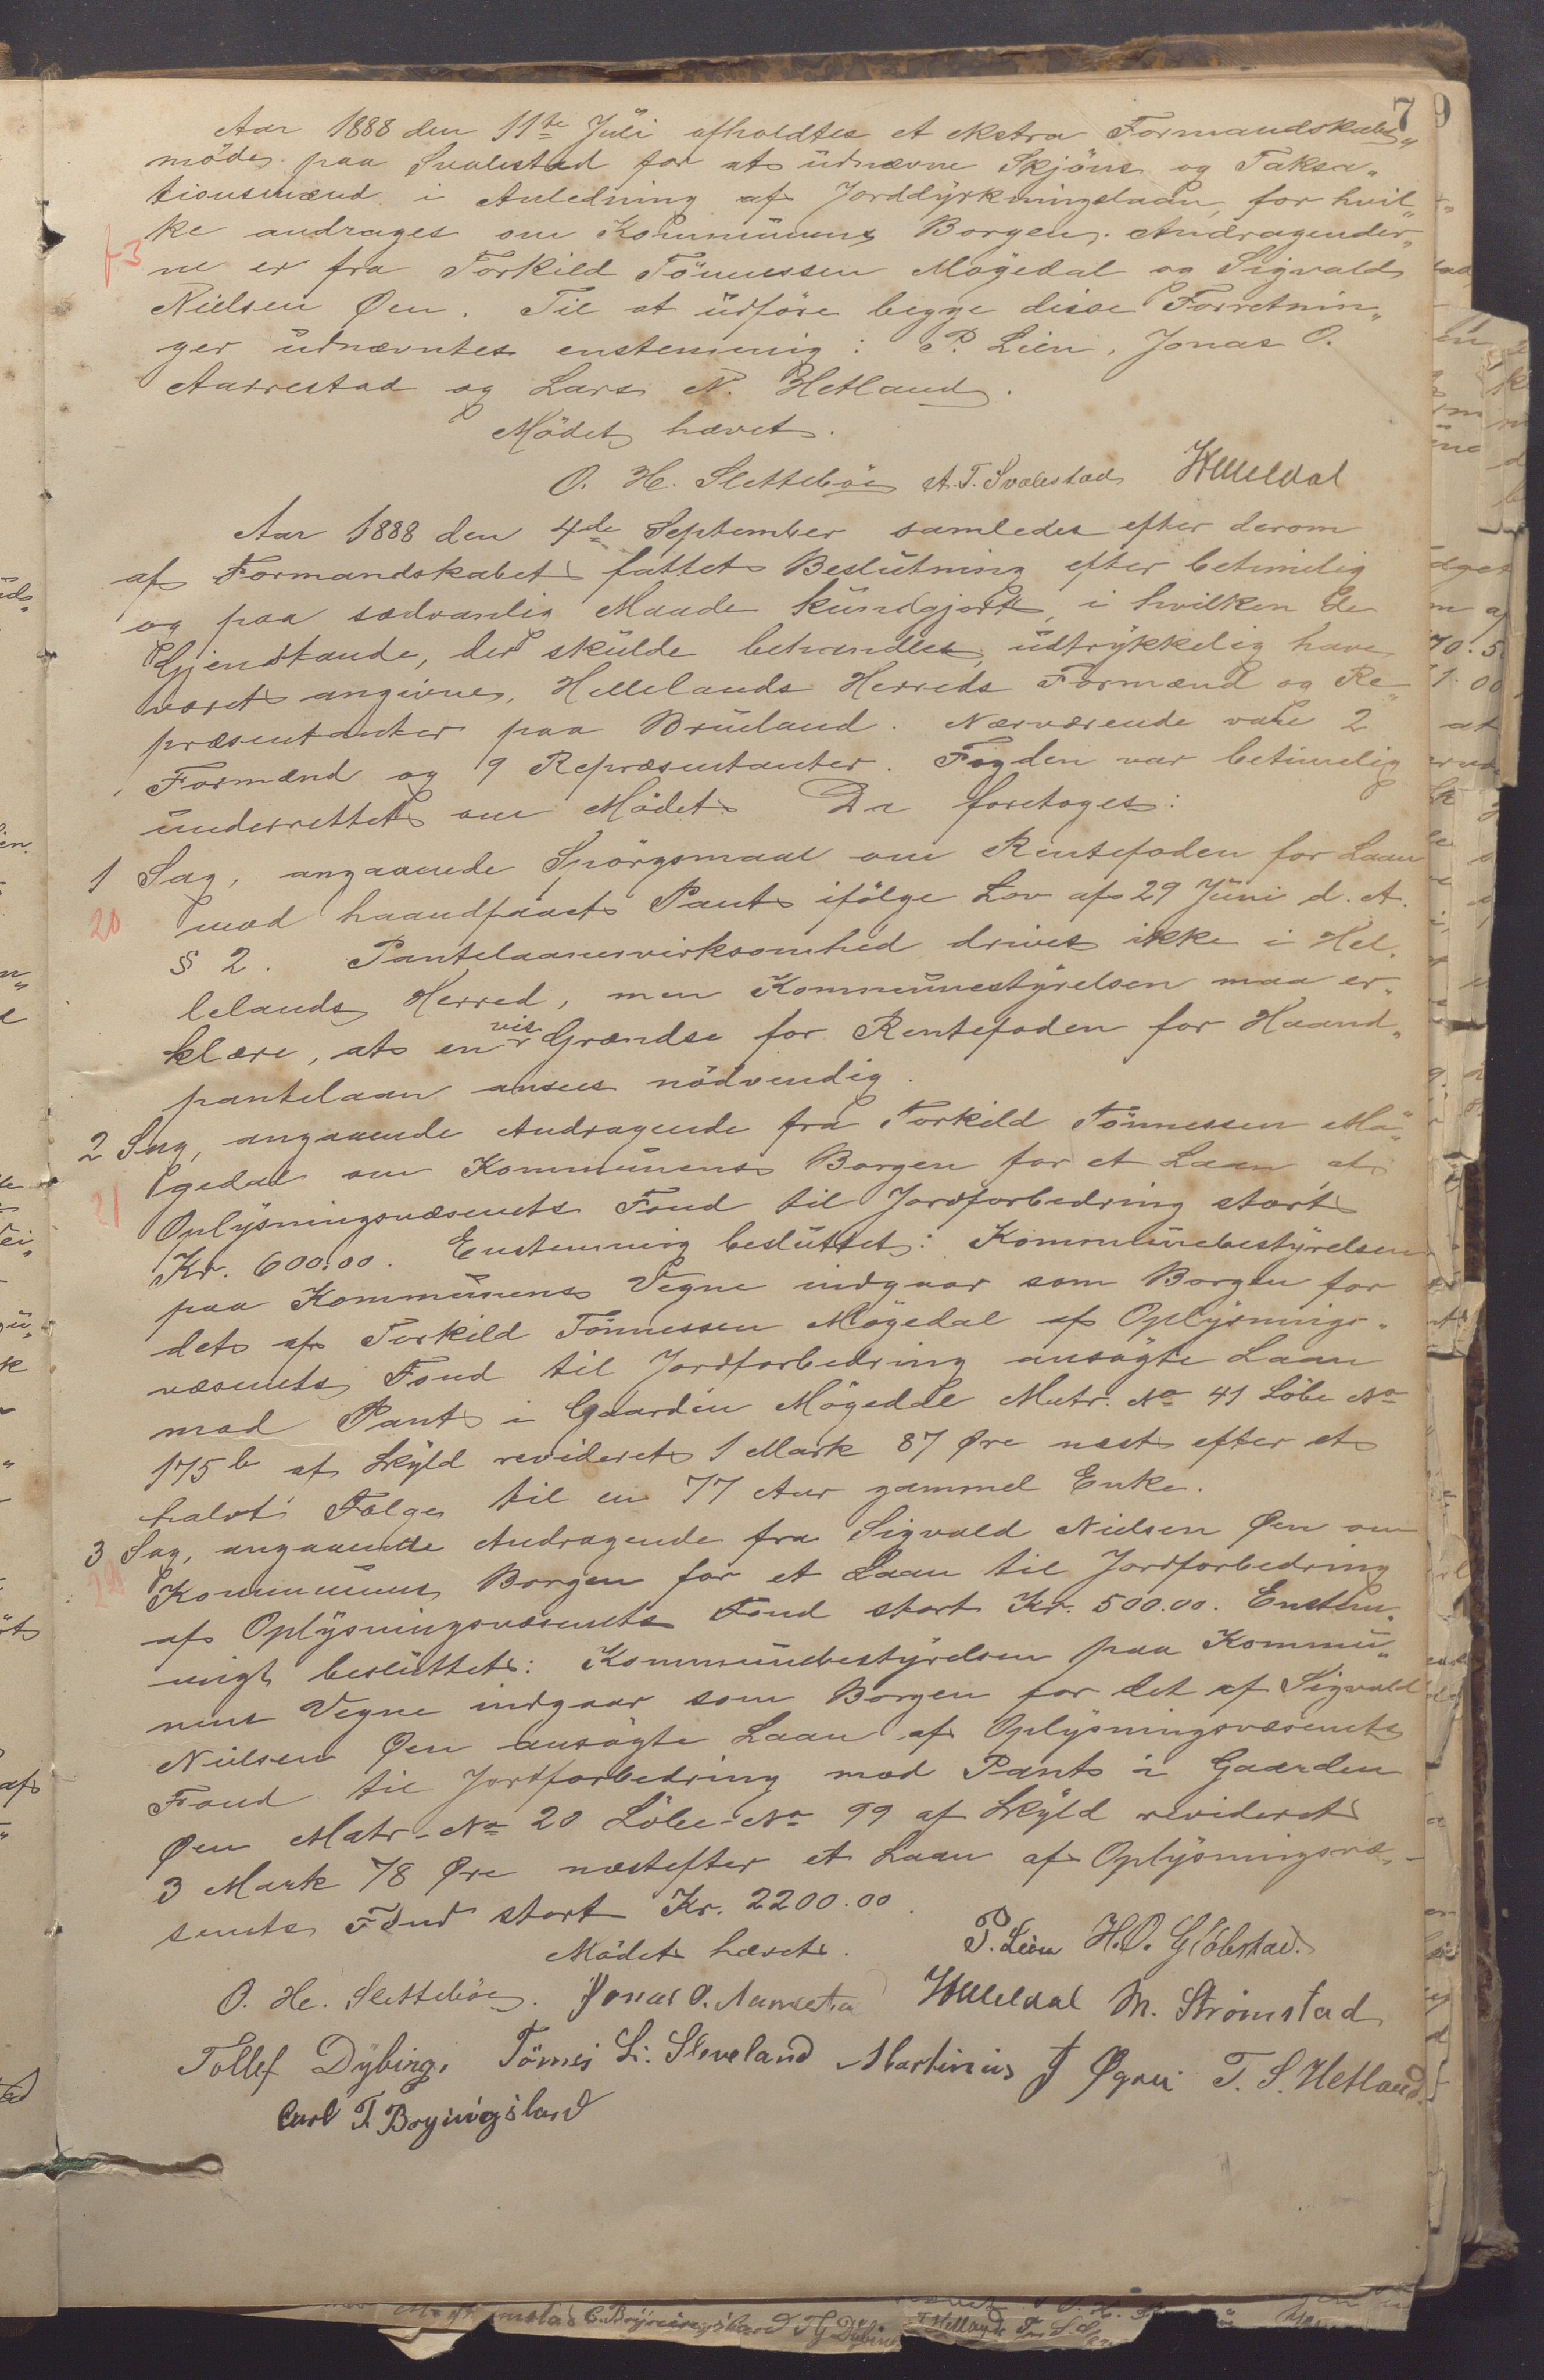 7
9
Aar 1888 den 11te Juli afholdtes et ekstra Formandskabs„
möde paa Svalestad for at udnævne Skjöns og Taksa„
tionsmænd i Anledning af Jorddyrkningslaan, for hvil„
ke andrages om Kommunens Borgen. Andragender„
ne er fra Torkild Tönnessen Mögedal og Sigvald
Nielsen Øen. Til at udföre begge disse Forretnin„
ger udnævntes enstemmig: P. Lien, Jonas O.
Aarrestad og Lars N. Hetland.
Mödet hævet.
O. H. Sletteböe A. T. Svalestad
Aar 1888 den 4de September samledes efter derom
af Formandskabet fattet Beslutning efter betimelig
og paa sædvanlig Maade kundgjort, i hvilken de
Gjenstande, der skulde behandles, udtrykkelig have
været angivne, Hellelands Herreds Formænd og Re„
præsentanter paa Bruland. Nærværende vare 2
Formænd og 9 Repræsentanter. Fogden var betimelig
underrettet om Mödet. Da foretoges:
1 Sag, angaaende Spörgsmaal om Rentefoden for Laan
20 mod haandfaaet Pant ifölge Lov af 29 Juni d. A.
§ 2. Pantelaanervirksomhed drives ikke i Hel„
lelands Herred, men Kommunestyrelsen maa er„
klære, at en vis Grændse for Rentefoden for Haand„
pantelaan ansees nödvendig.
2 Sag, angaaende Andragende fra Torkild Tönnessen Mö„
gedal om Kommunens Borgen for et Laan af
21 Oplysningsvæsenets Fond til Jordforbedring stort
Kr. 600.00. Enstemmig besluttet: Kommunebestyrelsen
paa Kommunens Vegne indgaar som Borgen for
det af Torkild Tönnessen Mögedal af Oplysnings„
væsenets Fond til Jordforbedring ansögte Laan
mod Pant i Gaarden Mögedal Matr. No 41 Löbe No
175 b af Skyld revideret 1 Mark 87 Øre næst efter et
halvt Folge til en 77 Aar gammel Enke.
3 Sag, angaaende Andragende fra Sigvald Nielsen Øen om
Kommunens Borgen for et Laan til Jordforbedring
af Oplysningsvæsenets Fond stort Kr. 500.00. Enstem„
migt besluttet: Kommunebestyrelsen paa Kommu„
nens Vegne indgaar som Borgen for det af Sigvald
Nielsen Øen ansögte Laan af Oplysningsvæsenets
Fond til Jordforbedring mod Pant i Gaarden
Øen Matr-No 20 Löbe-No 99 af Skyld revideret
3 Mark 78 Øre næstefter et Laan af Oplysningsvæ„
senets Fond stort Kr. 2200.00.
Mödet hævet.
P. Lien H. O. Glöbstad.
O. H. Sletteböe. Jonas O. M. Strömstad
Tollef Dybing. Tönnes L. Sleveland Martinius J Øgrei T. S. Hetland.
Carl T. Bryningsland